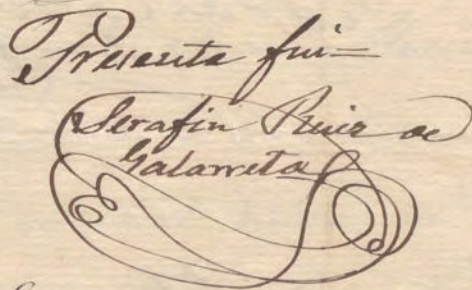 Presente fui=
Serafin Ruiz de
Galarreta